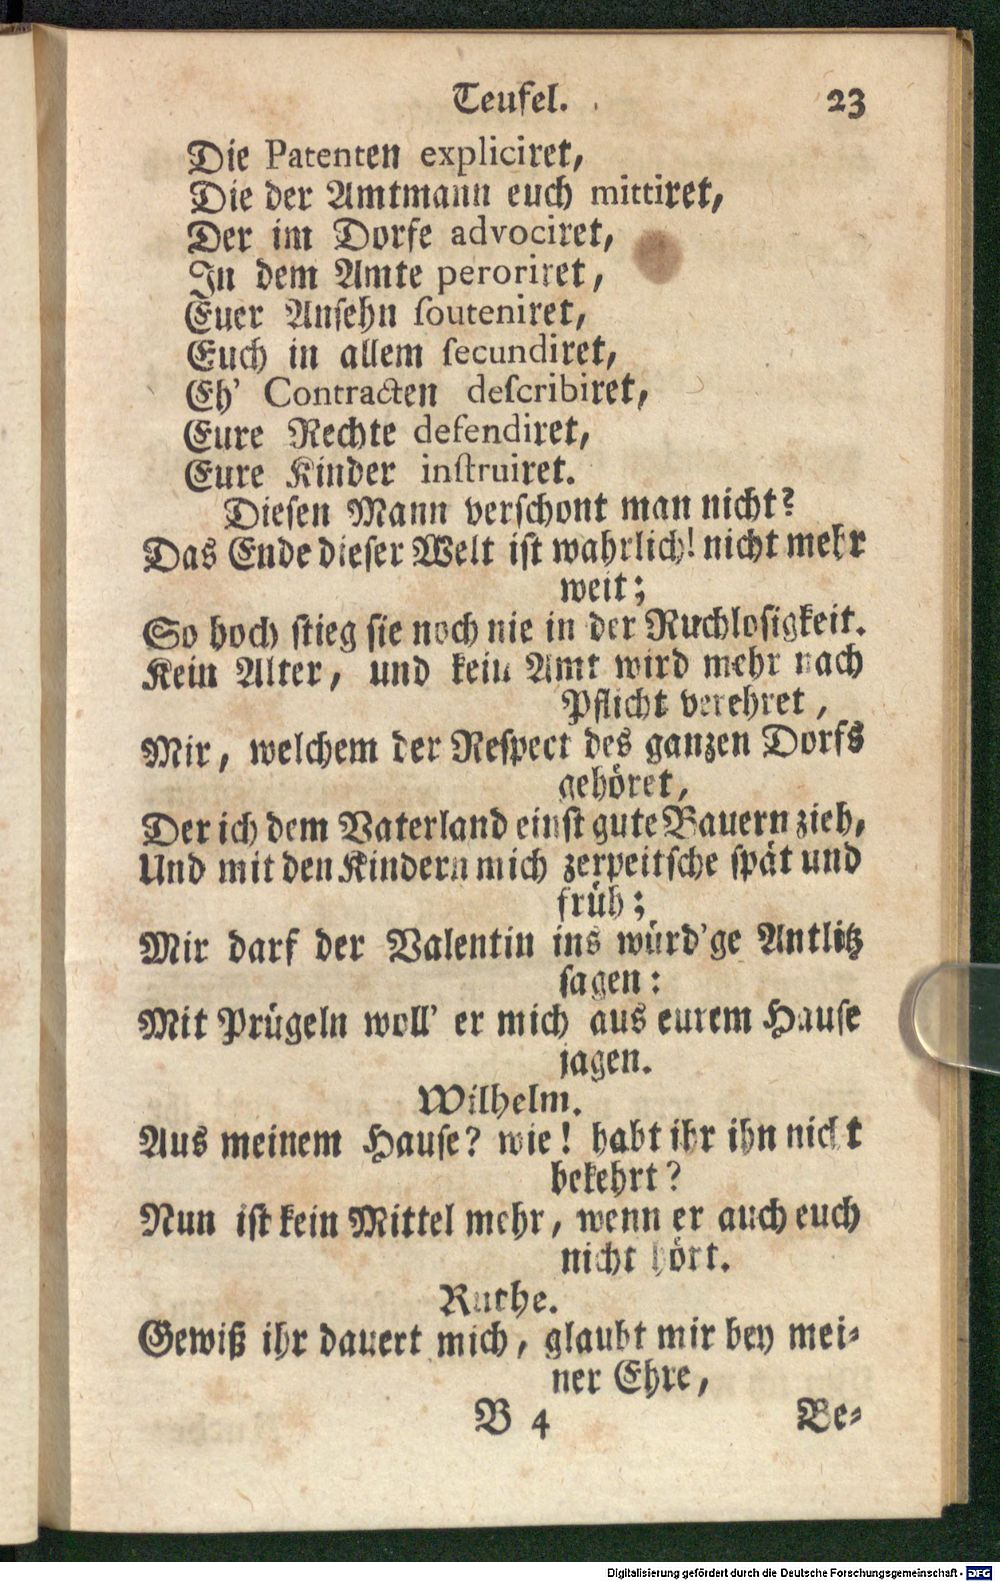 Teufel. 23
Die Patenten expliciret,
Die der Amtmann euch mittiret,
Der im Dorfe advociret,
In dem Amte peroriret,
Euer Ansehn souteniret,
Euch in allem secundiret,
Eh' Contracten describiret,
Eure Rechte defendiret,
Eure Kinder instruiret.
Diesen Mann verschont man nicht?
Das Ende dieser Welt ist wahrlich! nicht mehr
weit;
So hoch stieg sie noch nie in der Ruchlosigkeit.
Kein Alter, und kein Amt wird mehr nach
Pflicht verehret,
Mir, welchem der Respect des ganzen Dorfs
gehöret,
Der ich dem Vaterland einst gute Bauern zieh,
Und mit den Kindern mich zerpeitsche spät und
früh;
Mir darf der Valentin ins würd'ge Antlitz
sagen:
Mit Prügeln woll' er mich aus eurem Hause
jagen.
Wilhelm.
Aus meinem Hause? wie! habt ihr ihn nicht
bekehrt?
Nun ist kein Mittel mehr, wenn er auch euch
nicht hört.
Ruthe.
Gewiß ihr dauert mich, glaubt mir bey mei-
ner Ehre,
B 4 Be-
Digitalisierung gefördert durch die Deutsche Forschungsgemeinschaft - DFG